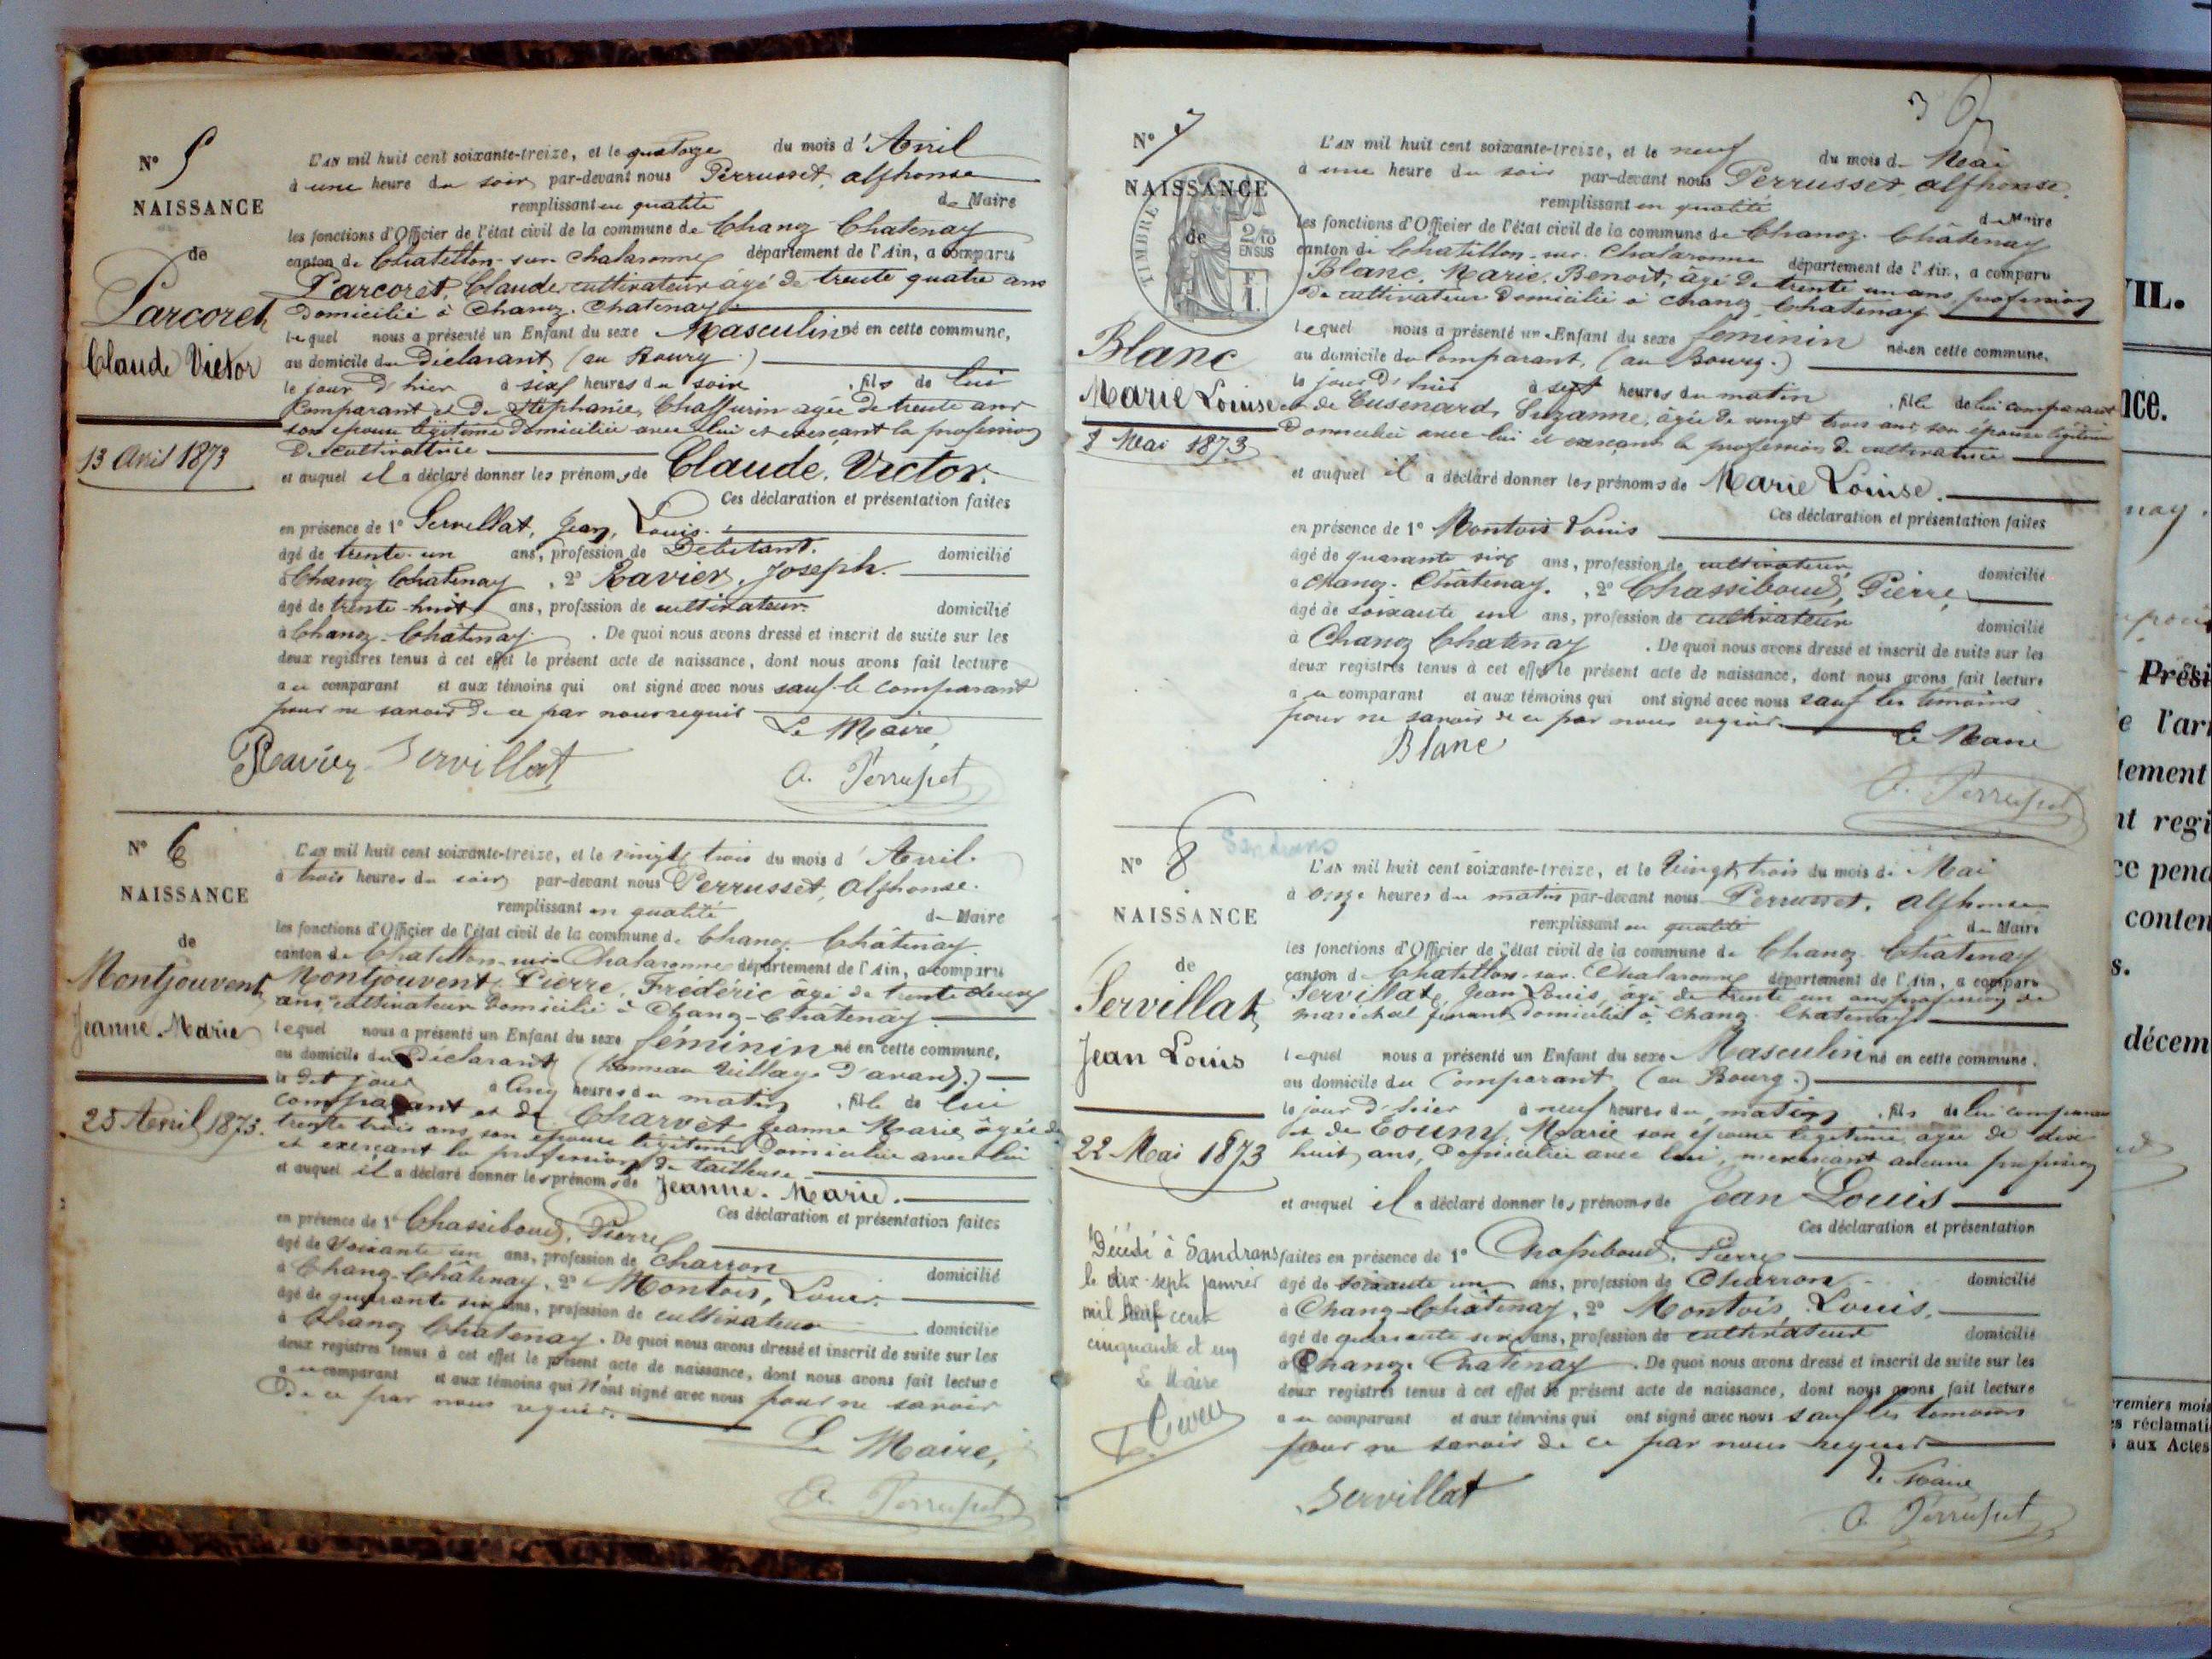 N° 5
NAISSANCE
de
Parcoret
Claude Victor
13 Avril 1873
L'AN mil huit cent soixante-treize, et le quatorze du mois d'Avril
à une heure du soir par-devant nous Perrusset, Alphonse
remplissant en qualité de Maire
les fonctions d'Officier de l'état civil de la commune de Chanoz Chatenay
canton de Chatillon-sur-Chalaronne département de l'Ain, a comparu
Parcoret, Claude cultivateur âgé de trente quatre ans
domicilié à Chanoz-Chatenay
lequel nous a présenté un Enfant du sexe Masculin né en cette commune,
au domicile du Déclarant (au Bourg.)
le jour d'hier à six heures du soir, fils de lui
Comparant et de Stéphanie Chaffurin agée de trente ans
son épouse légitime domiciliée avec lui et exerçant la profession
De cultivatrice
et auquel il a déclaré donner les prénoms de Claude, Victor.
Ces déclaration et présentation faites
en présence de 1° Servillat, Jean, Louis.
âgé de trente-un ans, profession de Débitant. domicilié
à Chanoz Chatenay, 2° Ravier, Joseph.
âgé de trente-huit ans, profession de cultivateur domicilié
à Chanoz-Châtenay. De quoi nous avons dressé et inscrit de suite sur les
deux registres tenus à cet effet le présent acte de naissance, dont nous avons fait lecture
au comparant et aux témoins qui ont signé avec nous sauf le comparant
pour ne savoir de ce par nous requis
Le Maire,
Ravier Servillat
A. Perrusset
N° 6
NAISSANCE
de
Montjouvent
Jeanne-Marie
23 Avril 1873.
L'AN mil huit cent soixante-treize, et le vingt trois du mois d'Avril.
à trois heures du soir par-devant nous Perrusset, Alphonse.
remplissant en qualité de Maire
les fonctions d'Officier de l'état civil de la commune de Chanoz-Châtenay
canton de Chatillon-sur-Chalaronne département de l'Ain, a comparu
Montjouvent, Pierre, Frédéric âgé de trente deux
ans cultivateur domicilié à Chanoz-Chatenay
lequel nous a présenté un Enfant du sexe féminin né en cette commune,
au domicile du Déclarant (hameau Village d'avand.)
le dit jour à Cinq heures du matin, fille de lui
comparant et de Charvet Jeanne Marie âgée de
trente trois ans son épouse légitime domiciliée avec lui
et exerçant la profession de tailleuse
et auquel il a déclaré donner les prénoms de Jeanne-Marie.
Ces déclaration et présentation faites
en présence de 1° Chassiboud, Pierre
âgé de soixante un ans, profession de charron domicilié
à Chanoz-Châtenay, 2° Montois, Louis.
âgé de quarante six ans, profession de cultivateur domicilié
à Chanoz Chatenay. De quoi nous avons dressé et inscrit de suite sur les
deux registres tenus à cet effet le présent acte de naissance, dont nous avons fait lecture
au comparant et aux témoins qui n'ont signé avec nous pour ne savoir
de ce par nous requis.
Le Maire,
A. Perrusset
N° 7
NAISSANCE
de
TIMBRE
2/10 EN SUS
Blanc
Marie Louise
8 Mai 1873
L'AN mil huit cent soixante-treize, et le neuf du mois de Mai
à une heure du soir par-devant nous Perrusset, Alphonse.
remplissant en qualité de Maire
les fonctions d'Officier de l'état civil de la commune de Chanoz-Châtenay
canton de Chatillon-sur-Chalaronne département de l'Ain, a comparu
Blanc, Marie, Benoit, âgé de trente un ans profession
de cultivateur domicilié à Chanoz Chatenay
lequel nous a présenté un Enfant du sexe féminin né en cette commune,
au domicile du Comparant, (au Bourg.)
le jour d'hier à sept heures du matin, fille de lui comparant
et de Cusenard, Suzanne, âgée de vingt trois ans son épouse légitime
Domiciliée avec lui et exerçant la profession de cultivatrice
et auquel il a déclaré donner les prénoms de Marie Louise.
Ces déclaration et présentation faites
en présence de 1° Montois Louis
âgé de quarante six ans, profession de cultivateur domicilié
à Chanoz-Châtenay. , 2° Chassiboud, Pierre
âgé de soixante un ans, profession de cultivateur domicilié
à Chanoz Chatenay. De quoi nous avons dressé et inscrit de suite sur les
deux registres tenus à cet effet le présent acte de naissance, dont nous avons fait lecture
au comparant et aux témoins qui ont signé avec nous sauf les témoins
pour ne savoir de ce par nous requis.
Le Maire
Blanc
A. Perrusset
N° 8
Sandrans
NAISSANCE
de
Servillat
Jean Louis
22 Mai 1873
Décédé à Sandrans
le dix-sept janvier
mil neuf cent
cinquante et un
Le Maire
L'AN mil huit cent soixante-treize, et le Vingt trois du mois de Mai
à onze heures du matin par-devant nous Perrusset, Alphonse
remplissant en qualité de Maire
les fonctions d'Officier de l'état civil de la commune de Chanoz-Châtenay
canton de Chatillon-sur-Chalaronne département de l'Ain, a comparu
Servillat, Jean Louis, âgé de trente un ans profession de
maréchal ferrant domicilié à Chanoz-Chatenay
lequel nous a présenté un Enfant du sexe Masculin né en cette commune,
au domicile du Comparant (au Bourg.)
le jour d'hier à neuf heures du matin, fils de lui comparant
et de Touny, Marie son épouse légitime, agée de dix
huit ans, Domiciliée avec lui, n'exerçant aucune profession
et auquel il a déclaré donner les prénoms de Jean Louis
Ces déclaration et présentation
faites en présence de 1° Chassiboud, Pierre
âgé de soixante un ans, profession de Charron domicilié
à Chanoz-Châtenay, 2° Montois Louis.
âgé de quarante six ans, profession de cultivateur domicilié
à Chanoz-Chatenay. De quoi nous avons dressé et inscrit de suite sur les
deux registres tenus à cet effet le présent acte de naissance, dont nous avons fait lecture
au comparant et aux témoins qui ont signé avec nous sauf les témoins
pour ne savoir de ce par nous requis
Le Maire
Servillat
A. Perrusset
VII.